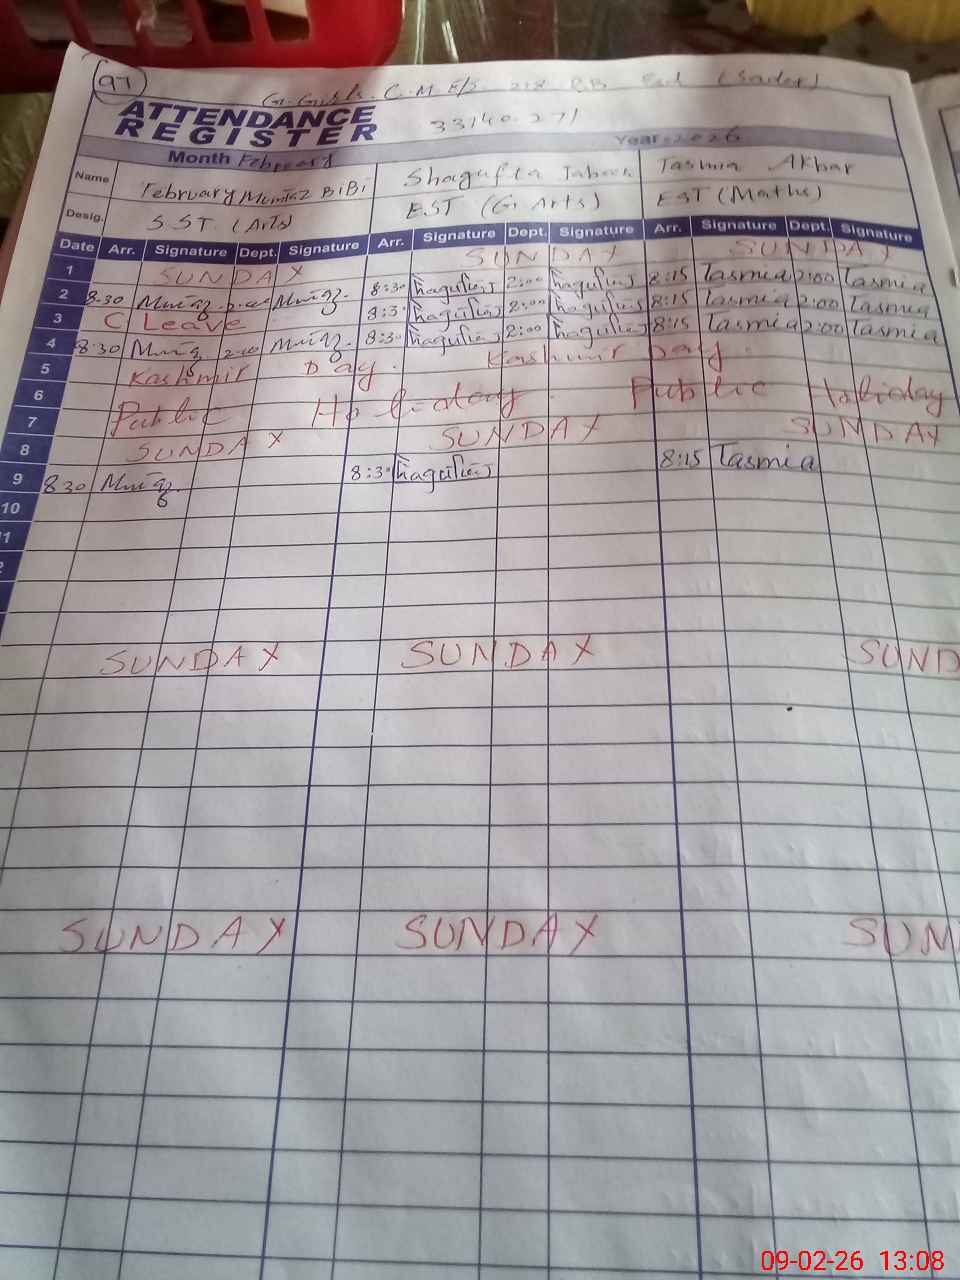 97
G. Girls. C. M E/S 218 RB
ATTENDANCE
REGISTER
33140271
Year 2026
Month February
Name February Mumtaz BiBi Shagufta Jabeen Tasmia Akbar
Desig. S.S.T. (Arts) EST (G. Arts) EST (Maths)
Date Arr. Signature Dept. Signature Arr. Signature Dept. Signature Arr. Signature Dept. Signature
1 SUNDAY SUNDAY SUNDAY
2 8:30 2:00 8:30 2:00 8:15 Tasmia 2:00 Tasmia
3 C Leave 8:30 2:00 8:15 Tasmia 2:00 Tasmia
4 8:30 2:00 8:30 2:00 8:15 Tasmia 2:00 Tasmia
5 Kashmir Day. Kashmir Day.
6 Public Holiday. Public Holiday
7
8 SUNDAY SUNDAY SUNDAY
9 8:30 8:30 8:15 Tasmia
10
SUNDAY SUNDAY SUND
SUNDAY SUNDAY SUN
09-02-26 13:08